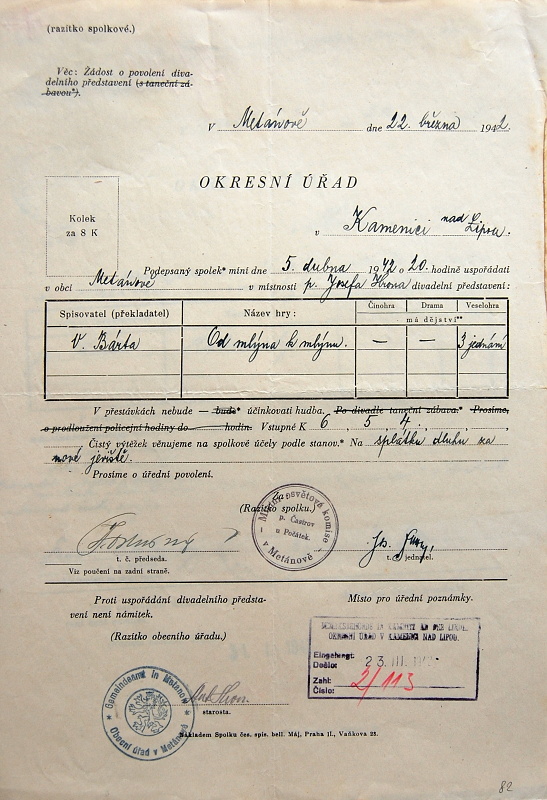 (razítko spolkové.)
Věc: Žádost o povolení diva-
delního představení (s taneční zá-
bavou*).
V Metánově dne 22. března 1942.
OKRESNÍ ÚŘAD
Kolek
za 8 K
v Kamenici nad Lipou.
Podepsaný spolek* míní dne 5. dubna 1942 o 20. hodině uspořádati
v obci Metánově v místnosti p. Josefa Hrona divadelní představení:
Spisovatel (překladatel) Název hry: Činohra Drama Veselohra
má dějství**
V. Bárta Od mlýna k mlýnu. — — 3 jednání
V přestávkách nebude — bude* účinkovati hudba. Po divadle taneční zábava.* Prosíme,
o prodloužení policejní hodiny do hodin. Vstupné K 6, 5, 4,
Čistý výtěžek věnujeme na spolkové účely podle stanov.* Na splátku dluhu za
nové jeviště.
Prosíme o úřední povolení.
Za
(Razítko spolku.)
Místní osvětová komise
p. Častrov
u Počátek.
v Metánově
t. č. předseda.
t. č. jednatel.
Viz poučení na zadní straně.
Proti uspořádání divadelního představení
není námitek.
Místo pro úřední poznámky.
(Razítko obecního úřadu.)
OKRESNÍ ÚŘAD V KAMENICI NAD LIPOU.
Eingelangt:
Došlo: 23. III. 1942
Zahl:
Číslo: 2/113
Gemeindeamt in Metanow
Obecní úřad v Metánově
starosta.
Nákladem Spolku čes. spis. bell. Máj, Praha II., Vaňkova 25.
82